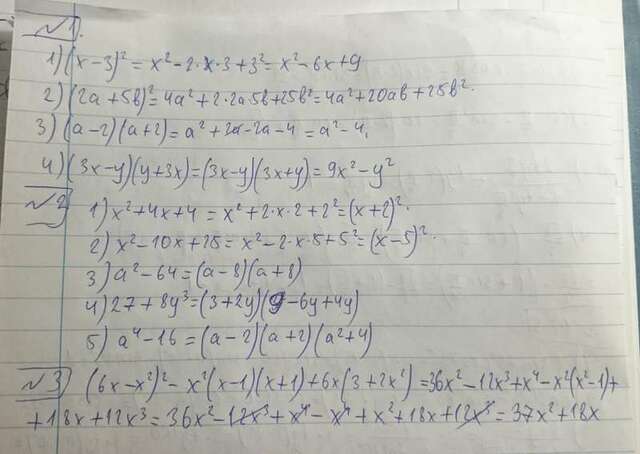 №1.
1) (x-3)² = x²-2·x·3+3² = x²-6x+9
2) (2a+5b)² = 4a²+2·2a5b+25b² = 4a²+20ab+25b².
3) (a-2)(a+2) = a²+2a-2a-4 = a²-4.
4) (3x-y)(y+3x) = (3x-y)(3x+y) = 9x²-y²
№2
1) x²+4x+4 = x²+2·x·2+2² = (x+2)².
2) x²-10x+25 = x²-2·x·5+5² = (x-5)².
3) a²-64 = (a-8)(a+8)
4) 27+8y³ = (3+2y)(9-6y+4y)
5) a⁴-16 = (a-2)(a+2)(a²+4)
№3) (6x-x²)²-x²(x-1)(x+1)+6x(3+2x²) = 36x²-12x³+x⁴-x²(x²-1)+
+18x+12x³ = 36x²-12x³+x⁴-x⁴+x²+18x+12x³ = 37x²+18x